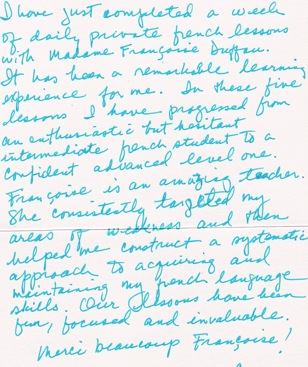 I have just completed a week
of daily private french lessons
with Madame Françoise Duffau.
It has been a remarkable learning
experience for me. In these five
lessons I have progressed from
an enthusiastic but hesitant
intermediate french student to a
confident advanced level one.
Françoise is an amazing teacher.
She consistently targeted my
areas of weakness and then
helped me construct a systematic
approach to acquiring and
maintaining my french language
skills. Our lessons have been
fun, focused and invaluable.
Merci beaucoup Françoise!